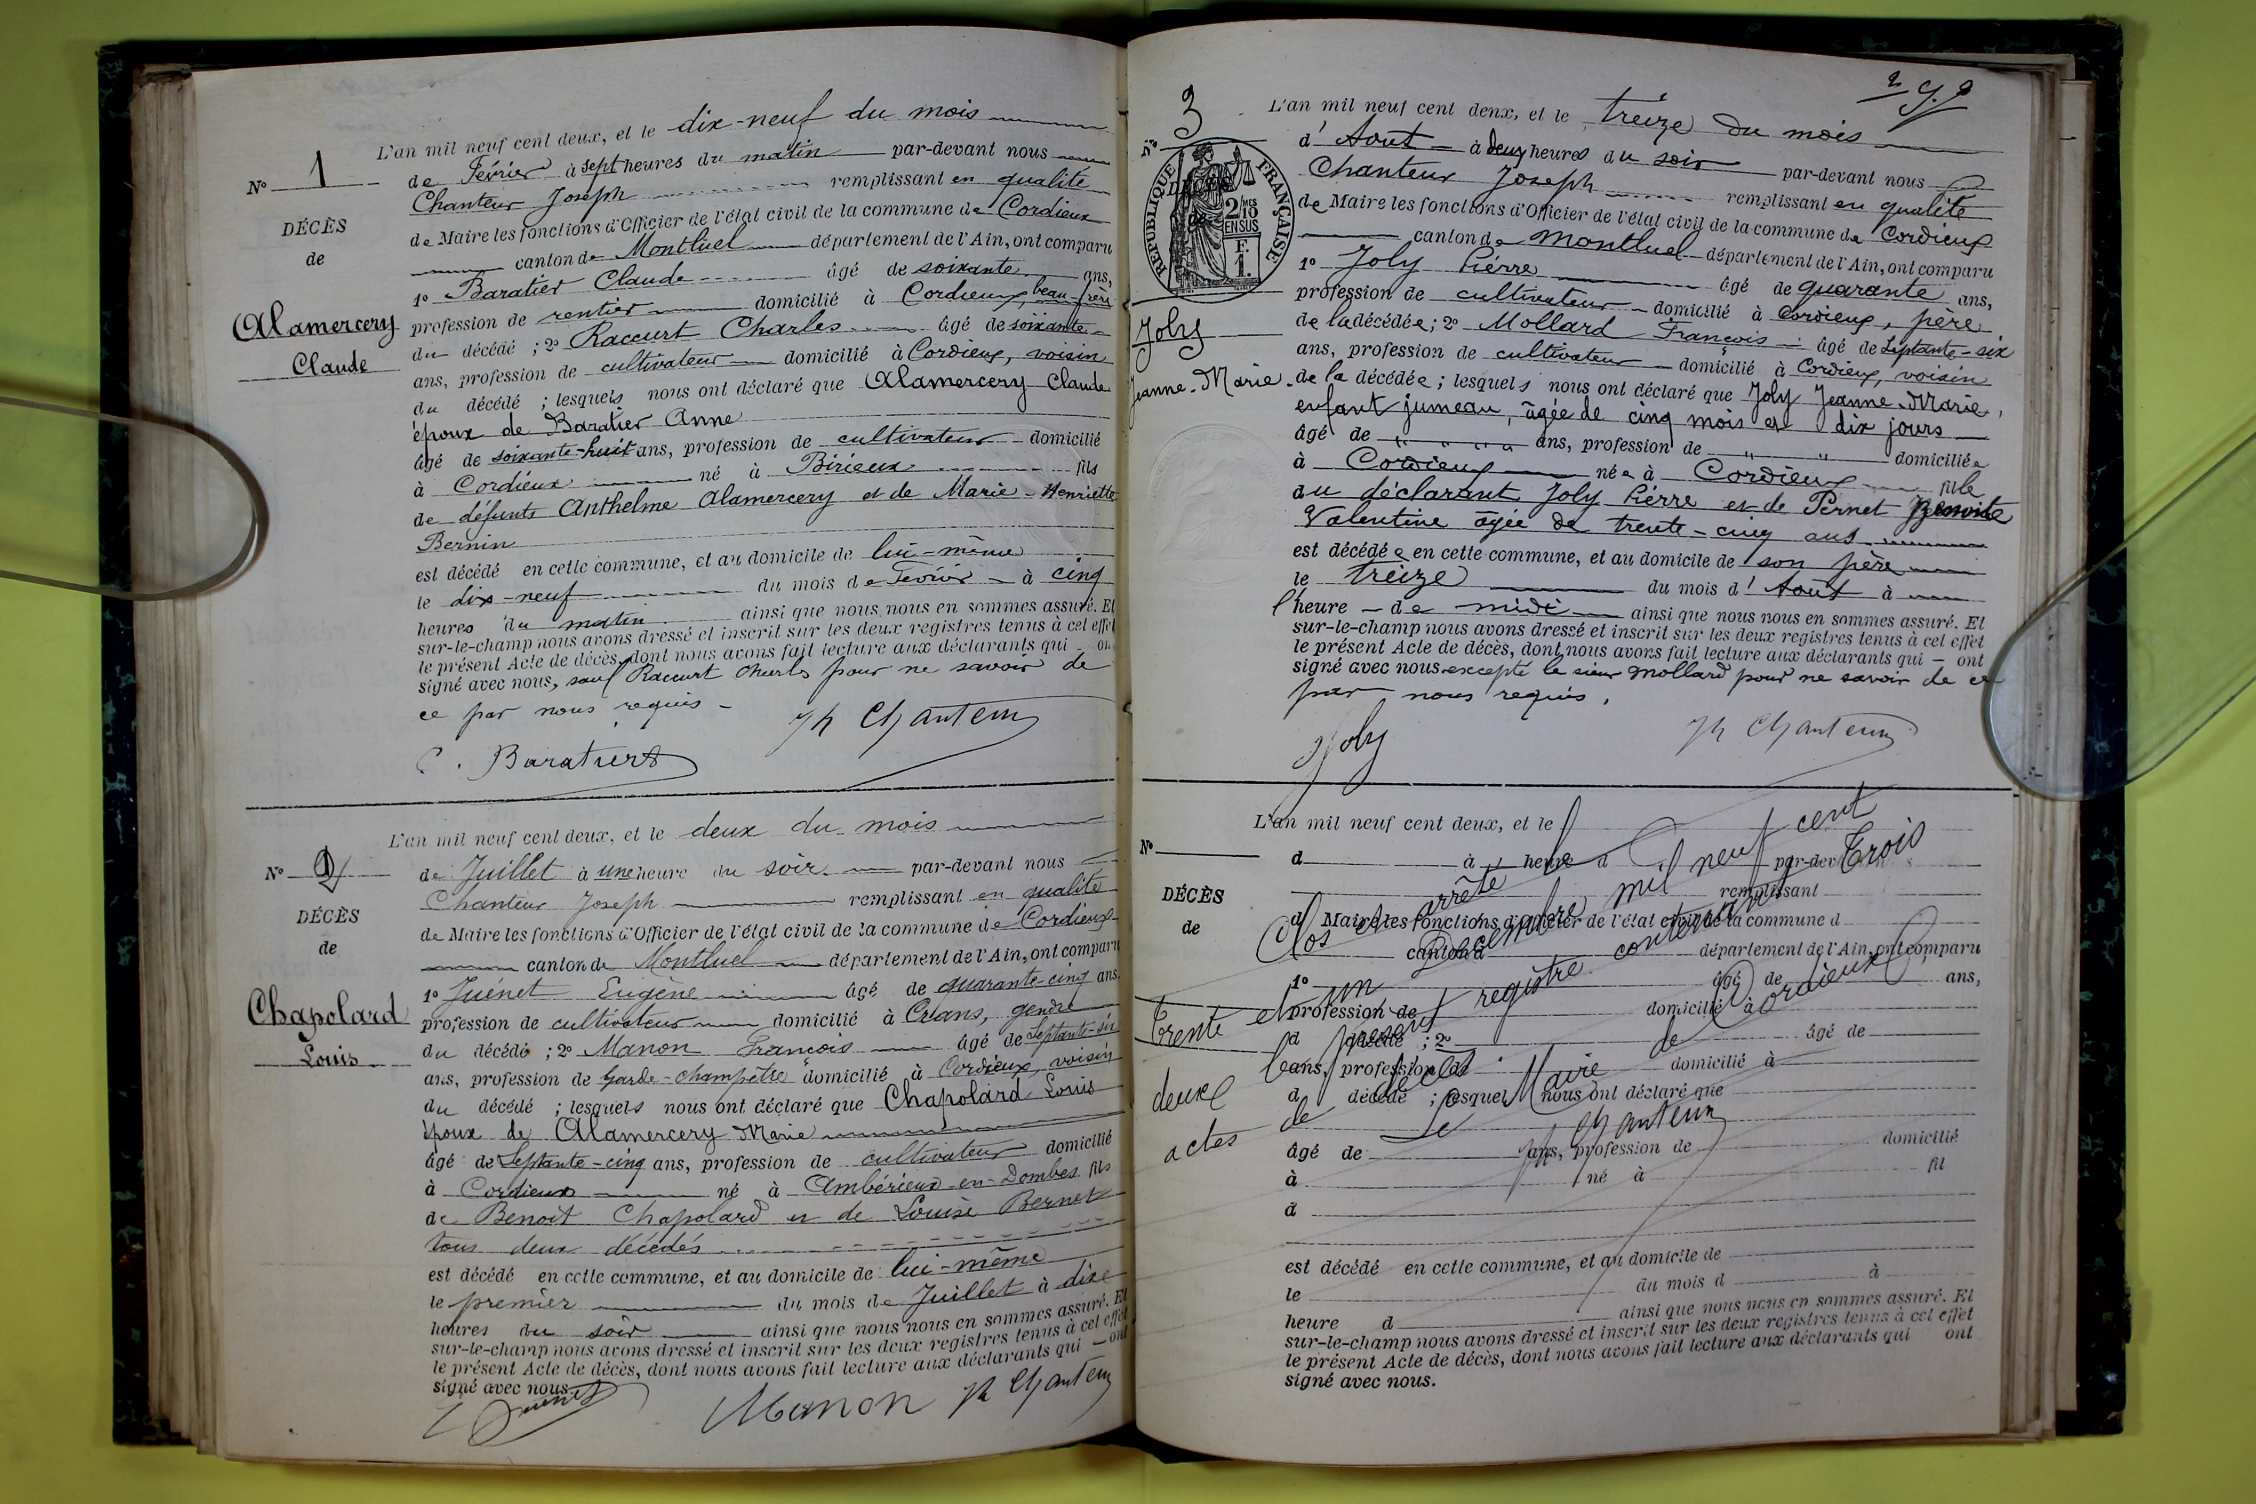 L'an mil neuf cent deux, et le dix-neuf du mois
N° 1
de Février à sept heures du matin par-devant nous
Chanteur Joseph remplissant en qualité
DÉCÈS
de Maire les fonctions d'Officier de l'état civil de la commune de Cordieux
de
canton de Montluel département de l'Ain, ont comparu
1° Baratier Claude âgé de soixante ans,
Alamercery
profession de rentier domicilié à Cordieux, beau-frère
Claude
du décédé ; 2° Raccurt Charles âgé de soixante
ans, profession de cultivateur domicilié à Cordieux, voisin
du décédé ; lesquels nous ont déclaré que Alamercery Claude
époux de Baratier Anne
âgé de soixante-huit ans, profession de cultivateur domicilié
à Cordieux né à Birieux fils
de défunts Anthelme Alamercery et de Marie-Henriette
Bernin
est décédé en cette commune, et au domicile de lui-même
le dix-neuf du mois de Février à cinq
heures du matin ainsi que nous nous en sommes assuré. Et
sur-le-champ nous avons dressé et inscrit sur les deux registres tenus à cet effet
le présent Acte de décès, dont nous avons fait lecture aux déclarants qui ont
signé avec nous, sauf Raccurt Charles pour ne savoir de
ce par nous requis
Jh Chanteur
C. Baratier
L'an mil neuf cent deux, et le deux du mois
N° 2
de Juillet à une heure du soir par-devant nous
Chanteur Joseph remplissant en qualité
DÉCÈS
de Maire les fonctions d'Officier de l'état civil de la commune de Cordieux
de
canton de Montluel département de l'Ain, ont comparu
1° Juénet Eugène âgé de quarante-cinq ans,
Chapolard
profession de cultivateur domicilié à Crans, gendre
Louis
du décédé ; 2° Manon François âgé de septante-six
ans, profession de Garde-champêtre domicilié à Cordieux, voisin
du décédé ; lesquels nous ont déclaré que Chapolard Louis
époux de Alamercery Marie
âgé de septante-cinq ans, profession de cultivateur domicilié
à Cordieux né à Ambérieux-en-Dombes fils
de Benoit Chapolard et de Louise Bernet
tous deux décédés
est décédé en cette commune, et au domicile de lui-même
le premier du mois de Juillet à dix
heures du soir ainsi que nous nous en sommes assuré. Et
sur-le-champ nous avons dressé et inscrit sur les deux registres tenus à cet effet
le présent Acte de décès, dont nous avons fait lecture aux déclarants qui ont
signé avec nous.
Juenet Manon Jh Chanteur
3
L'an mil neuf cent deux, et le treize du mois
N°
d'Aout à deux heures du soir par-devant nous
RÉPUBLIQUE FRANÇAISE
2/10MES EN SUS
F. 1.
DÉCÈS
de
Chanteur Joseph remplissant en qualité
de Maire les fonctions d'Officier de l'état civil de la commune de Cordieux
canton de Montluel département de l'Ain, ont comparu
1° Joly Piérre âgé de quarante ans,
profession de cultivateur domicilié à Cordieux, père
Joly
Jeanne-Marie
de la décédée ; 2° Mollard François âgé de septante-six
ans, profession de cultivateur domicilié à Cordieux, voisin
de la décédée ; lesquels nous ont déclaré que Joly Jeanne-Marie,
enfant jumeau, âgée de cinq mois et dix jours
âgé de " " " " ans, profession de " " domiciliée
à Cordieux née à Cordieux fille
du déclarant Joly Piérre et de Pernet Benoite
Valentine âgée de trente-cinq ans
est décédée en cette commune, et au domicile de son père
le treize du mois d'Août à
l'heure de midi ainsi que nous nous en sommes assuré. Et
sur-le-champ nous avons dressé et inscrit sur les deux registres tenus à cet effet
le présent Acte de décès, dont nous avons fait lecture aux déclarants qui ont
signé avec nous excepté le sieur Mollard pour ne savoir de ce
par nous requis.
Joly
Jh Chanteur
L'an mil neuf cent deux, et le
N°
d à heure d par-devant nous
remplissant
DÉCÈS
d Maire les fonctions d'Officier de l'état civil de la commune d
de
canton d département de l'Ain, ont comparu
1° âgé de ans,
profession de domicilié à
d décédé ; 2° âgé de
ans, profession de domicilié à
d décédé ; lesquels nous ont déclaré que
âgé de ans, profession de domicilié
à né à fil
d
est décédé en cette commune, et au domicile de
le du mois d à
heure d ainsi que nous nous en sommes assuré. Et
sur-le-champ nous avons dressé et inscrit sur les deux registres tenus à cet effet
le présent Acte de décès, dont nous avons fait lecture aux déclarants qui ont
signé avec nous.
Clos et arrêté le
trente et un Décembre mil neuf cent
deux le présent registre contenant trois
actes de décès
Le Maire de Cordieux
Jh Chanteur